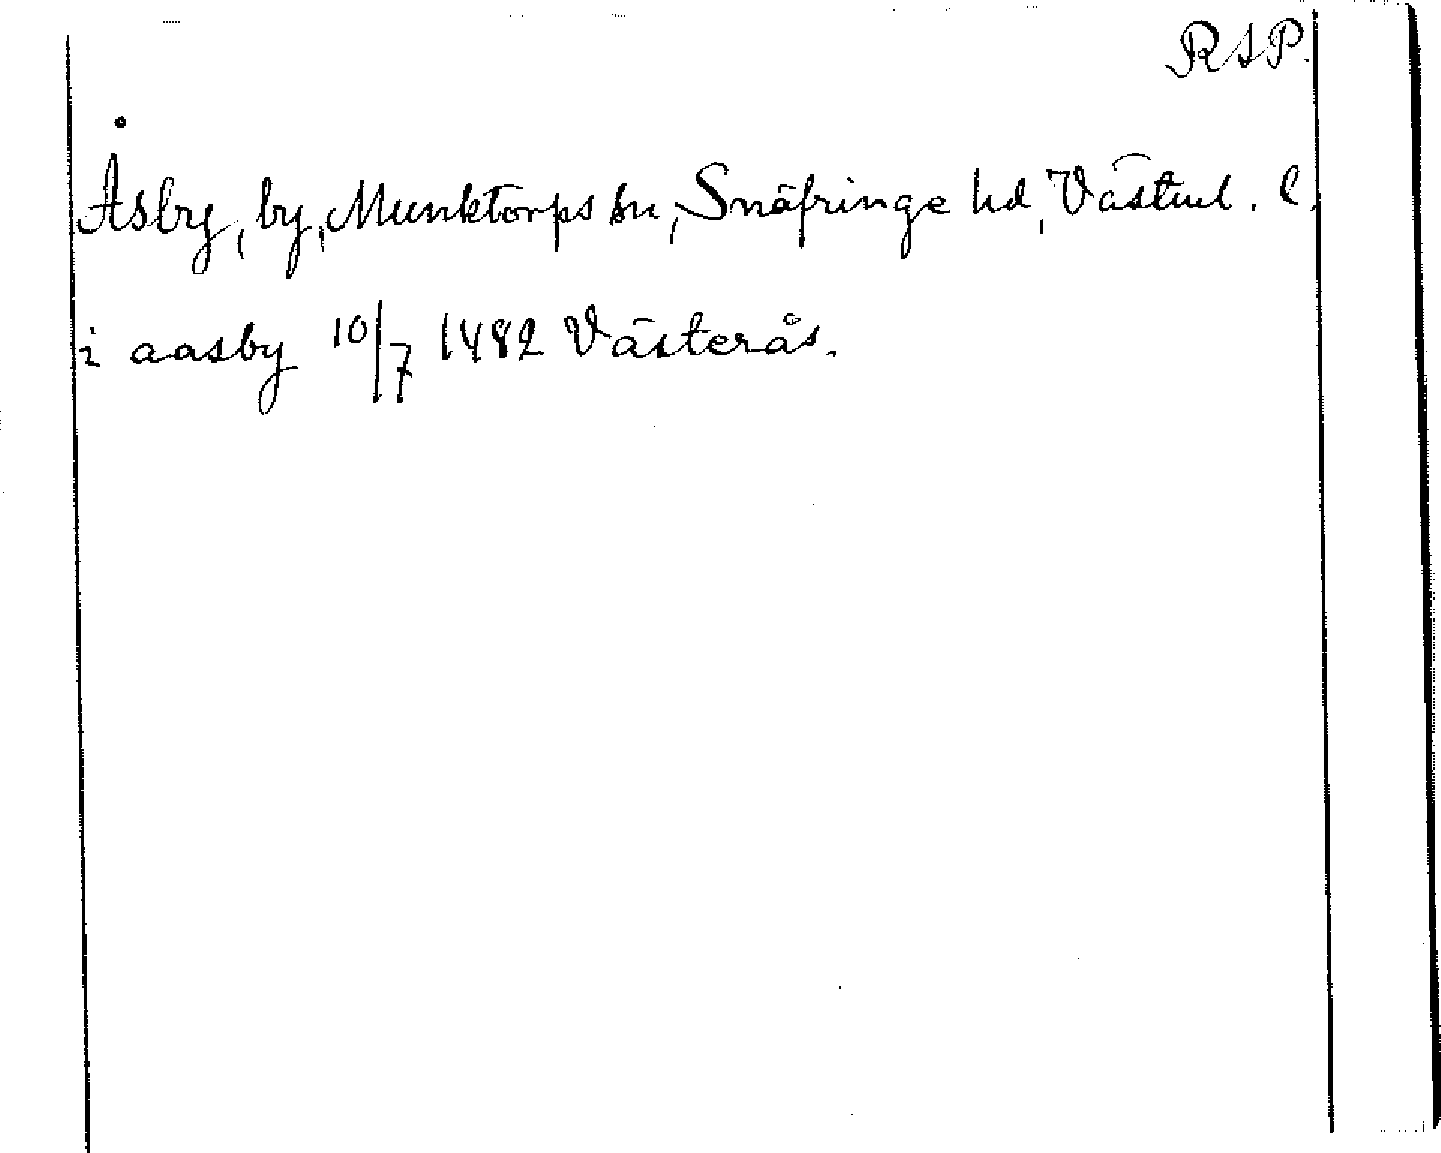 RAP.
Åsby, by, Munktorps sn, Snäfringe hd, Västml. l.
i aasby 10/7 1482 Västerås.